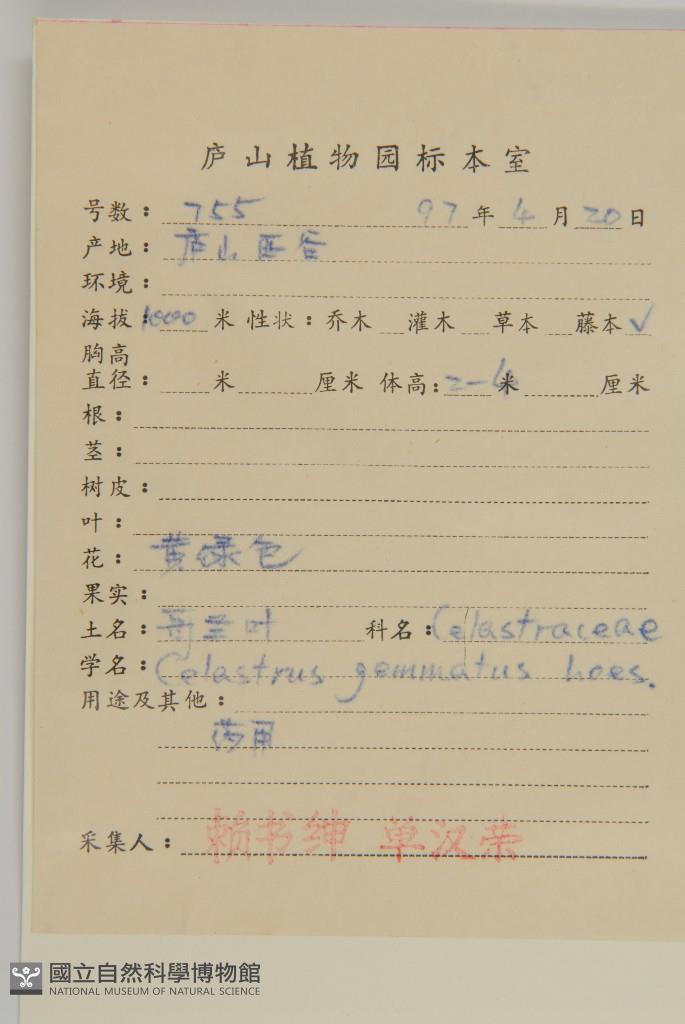 庐山植物园标本室
号数： 755 97 年 4 月 20 日
产地： 庐山 谷
环境：
海拔 1000 米 性状：乔木 灌木 草本 藤本 √
胸高
直径： 米 厘米 体高： 2-4 米 厘米
根：
茎：
树皮：
叶：
花： 黄绿色
果实：
土名： 哥兰叶 科名： Celastraceae
学名： Celastrus gemmatus Loes.
用途及其他：
药用
采集人： 赖书绅 单汉荣
國立自然科學博物館
NATIONAL MUSEUM OF NATURAL SCIENCE